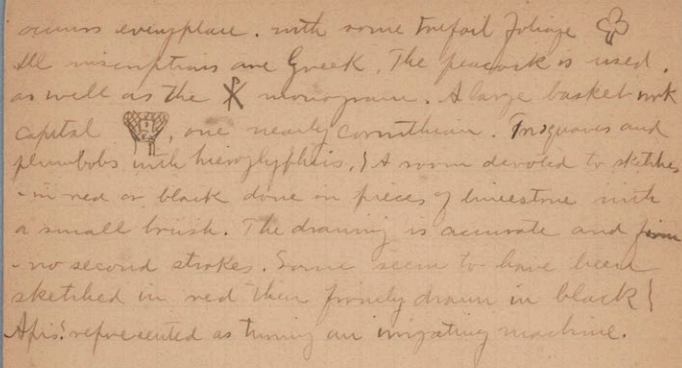 occurs everyplace. with some trefoil foliage
All inscriptions are Greek. The peacock is used,
as well as the ☧ monogram. A large basket work
capital, one nearly Corinthian. Trisquares and
plumbobs with hieroglyphics. A room devoted to sketches
- in red or black done on pieces of limestone with
a small brush. The drawing is accurate and firm
- no second strokes. Some seem to have been
sketched in red then firmly drawn in black!
Apis! represented as turning an irrigating machine.